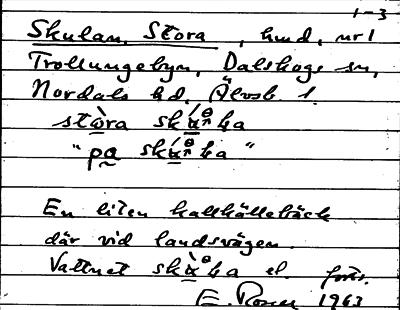 1-3
Skulan, Stora, hmd, nr 1
Trollungebyn, Dalskogs sn,
Nordals hd, Älvsb. l.
stòra
"pa
En liten kallkällebäck
där vid landsvägen.
Vattnet el. forts.
E. 1963